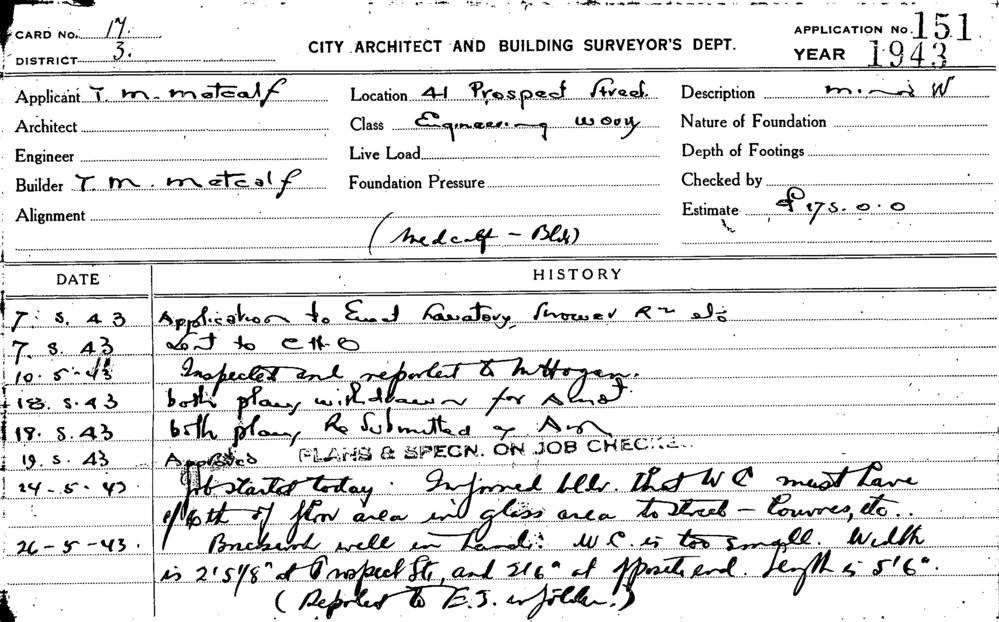 CARD NO. 17
DISTRICT 3.
CITY ARCHITECT AND BUILDING SURVEYOR'S DEPT.
APPLICATION NO. 151
YEAR 1943
Applicant T. M. Metcalf
Location 41 Prospect Street.
Description minor W
Architect
Class Engineering Works
Nature of Foundation
Engineer
Live Load
Depth of Footings
Builder T. M. Metcalf
Foundation Pressure
Checked by
Alignment
Estimate £175.0.0
(Medcalf - Bldr)
DATE
HISTORY
7. 5. 43 Application to Erect Lavatory, Shower Rm etc
7. 5. 43 Sent to C H O
10. 5. 43 Inspected and reported to Mr Hogan.
18. 5. 43 both plans withdrawn for Amdt
18. 5. 43 both plans Re Submitted
19. 5. 43 Approved PLANS & SPECN. ON JOB CHECKED
24-5-43 Job started today. Informed bldr. that W C must have
1/10th of floor area in glass area to street - louvres, etc..
26-5-43. Brickwork well in hand. W.C. is too small. Width
is 2'5 1/8" at Prospect St, and 2'6" at opposite end. Length is 5'6".
(Reported to E.J. in folder.)